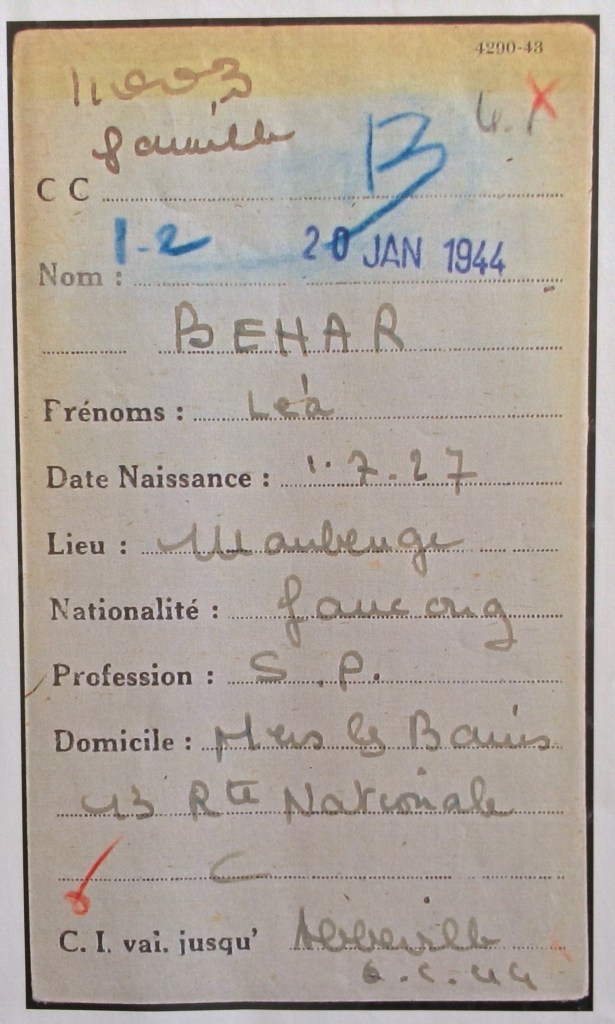 4290-43
11003
famille
C C
B
1-2 20 JAN 1944
Nom :
BEHAR
Frénoms : Léa
Date Naissance : 1.7.27
Lieu : Maubeuge
Nationalité :
Profession : S.P.
Domicile : Mers les Bains
43 Rte Nationale
C
C. I. vai. jusqu' Abbeville